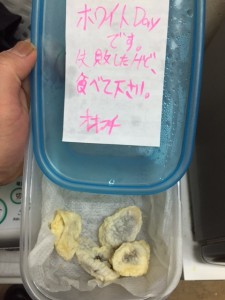 ホワイトDay
です。
失敗したけど、
食べて下さい。